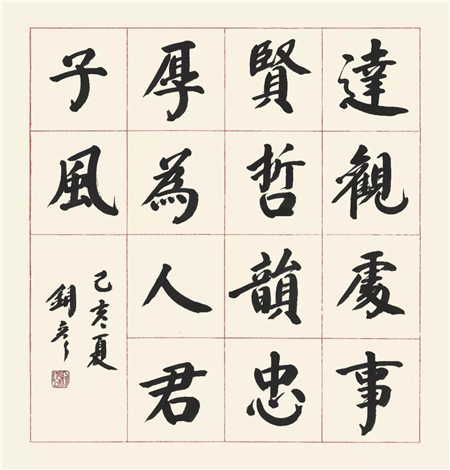 達觀處事
賢哲韻忠
厚為人君
子風
己亥夏
銅彥